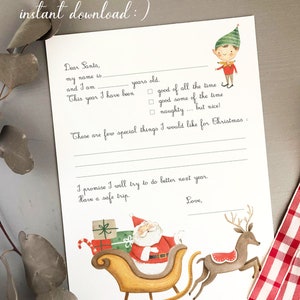 instant download :)
Dear Santa,
my name is
and I am ........ years old.
This year I have been good of all the time
good some of the time
naughty ... but nice!
These are few special things I would like for Christmas :
I promise I will try to do better next year.
Have a safe trip.
Love,